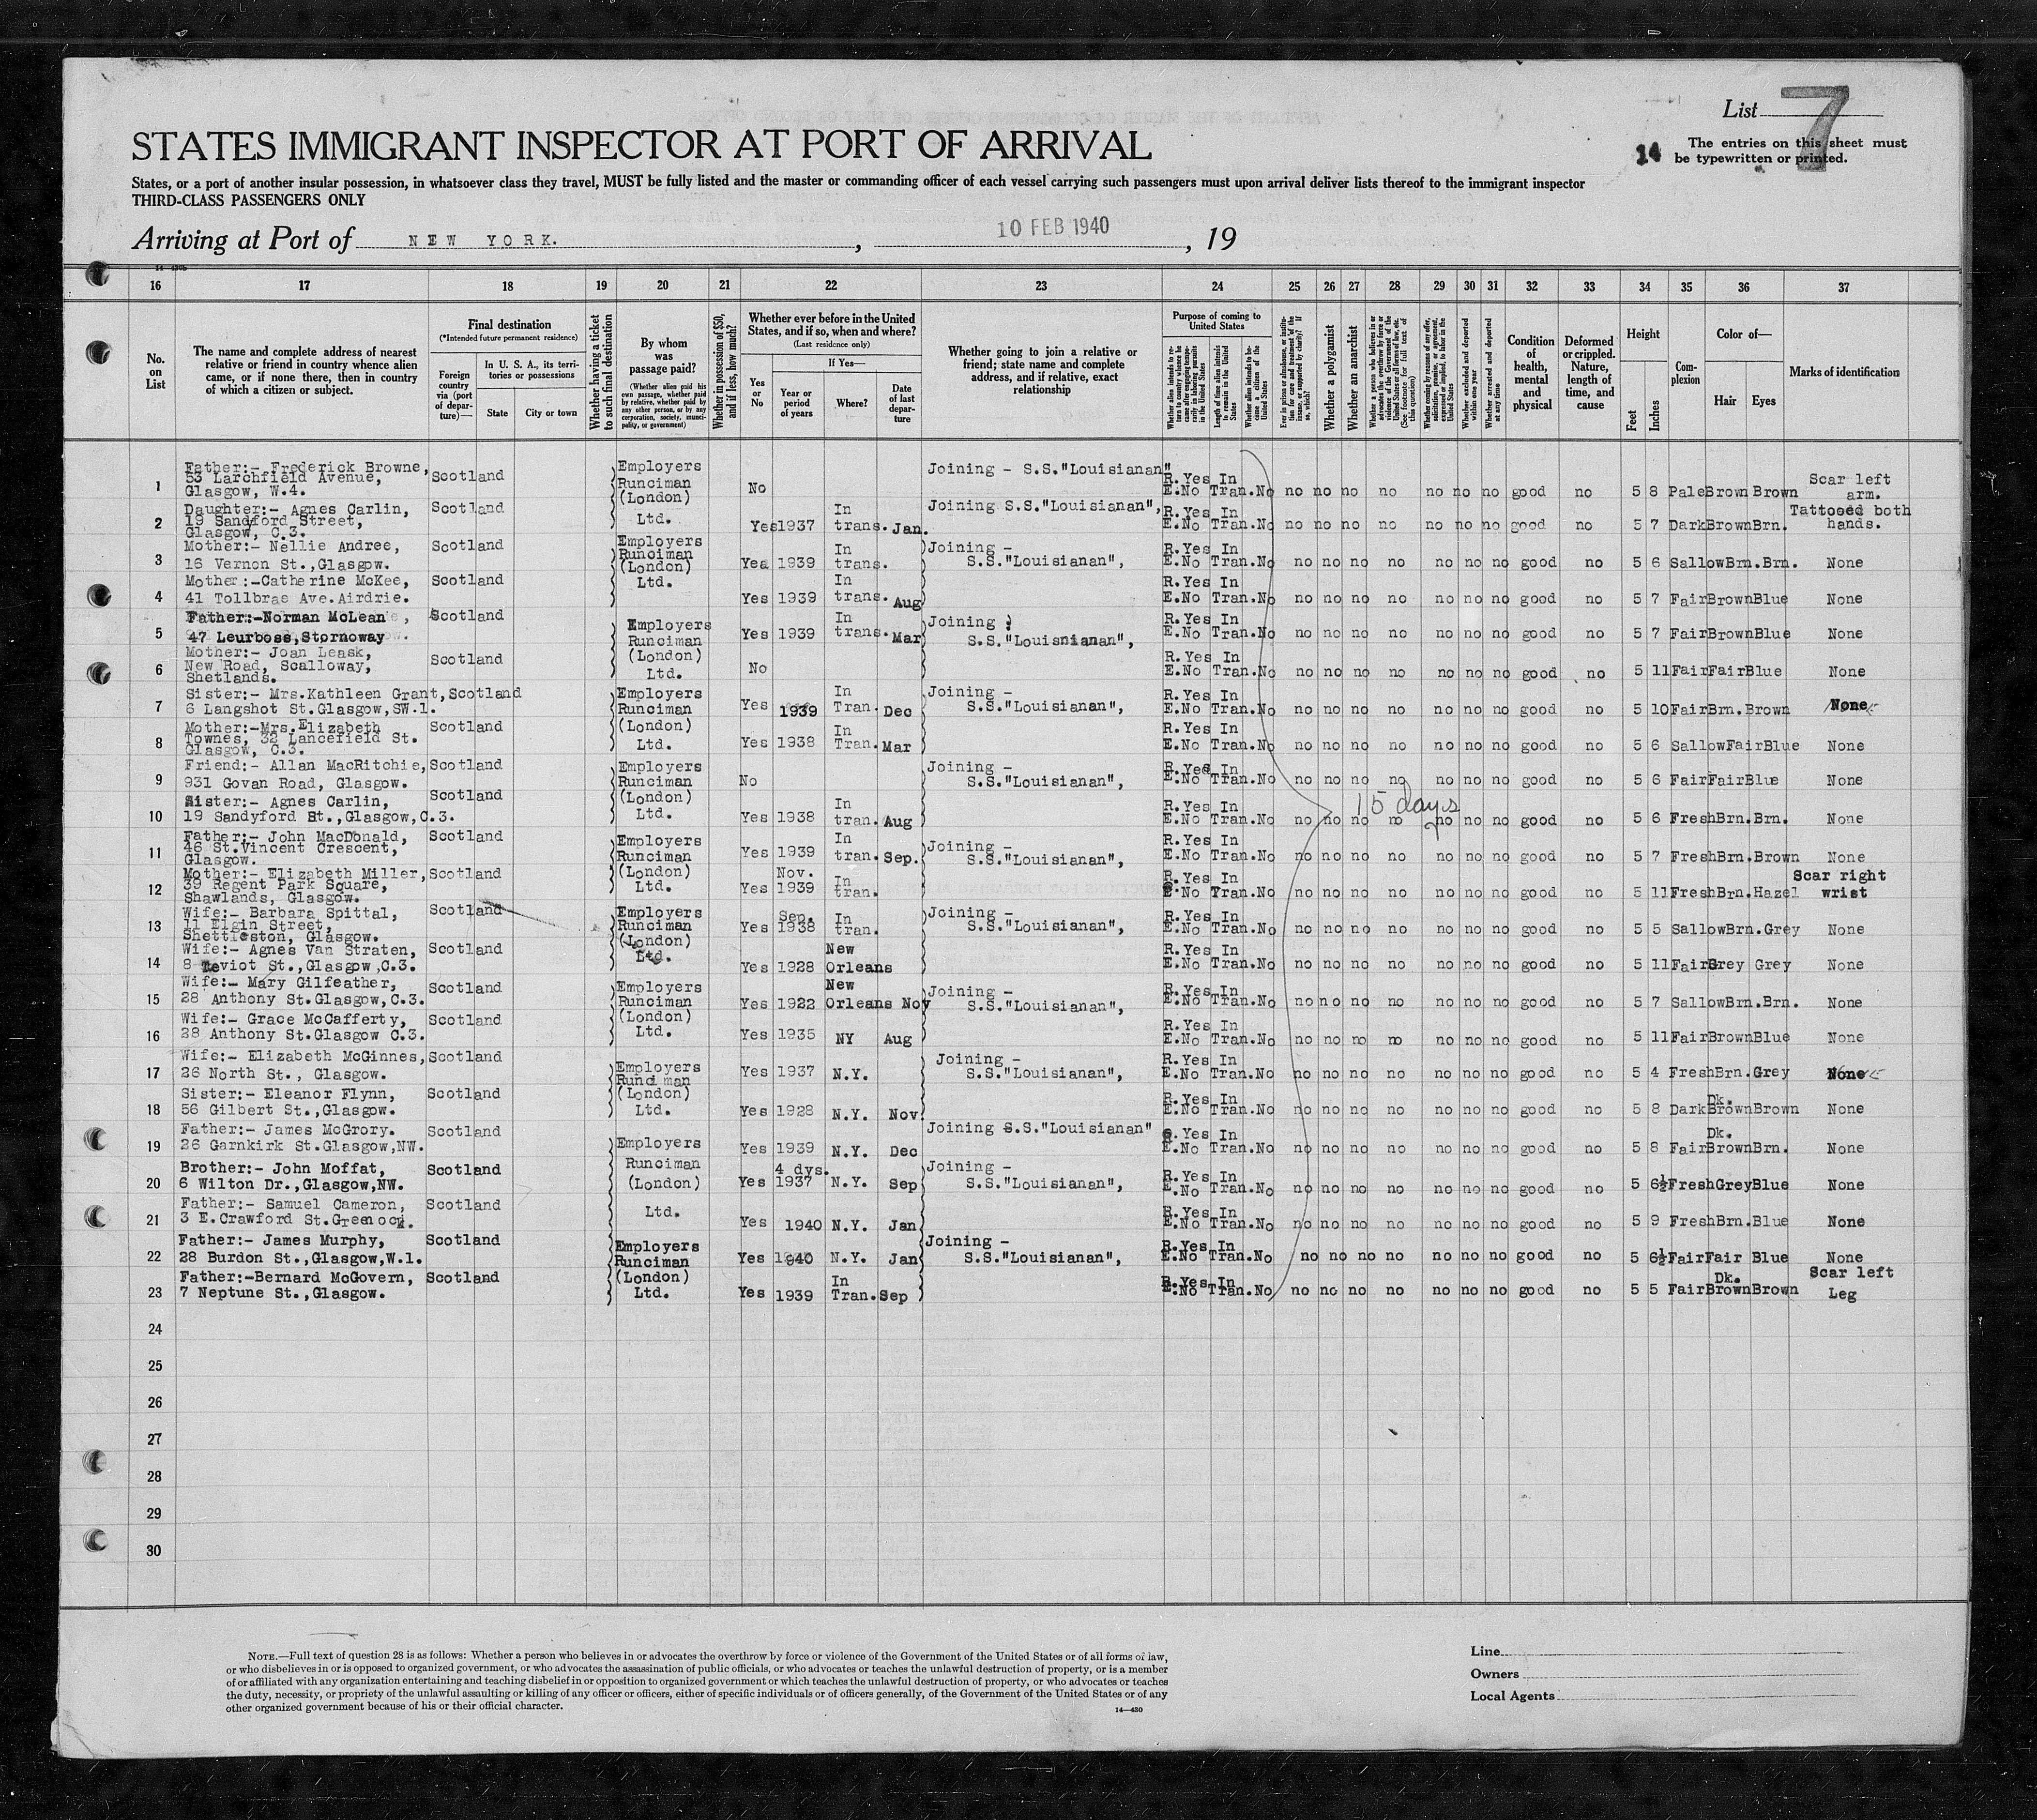 List 7
14
The entries on this sheet must
be typewritten or printed.
STATES IMMIGRANT INSPECTOR AT PORT OF ARRIVAL
States, or a port of another insular possession, in whatsoever class they travel, MUST be fully listed and the master or commanding officer of each vessel carrying such passengers must upon arrival deliver lists thereof to the immigrant inspector
THIRD-CLASS PASSENGERS ONLY
Arriving at Port of NEW YORK. , 10 FEB 1940 , 19
16 17 18 19 20 21 22 23 24 25 26 27 28 29 30 31 32 33 34 35 36 37
No. on List
The name and complete address of nearest
relative or friend in country whence alien
came, or if none there, then in country
of which a citizen or subject.
Final destination
(*Intended future permanent residence)
Foreign country via (port of departure)—
In U. S. A., its territories or possessions
State
City or town
Whether having a ticket to such final destination
By whom was passage paid?
(Whether alien paid his own passage, whether paid by relative, whether paid by any other person, or by any corporation, society, municipality, or government)
Whether in possession of $50, and if less, how much?
Whether ever before in the United
States, and if so, when and where?
(Last residence only)
Yes or No
If Yes—
Year or period of years
Where?
Date of last departure
Whether going to join a relative or
friend; state name and complete
address, and if relative, exact
relationship
Purpose of coming to United States
Length of time alien intends to remain in the United States
Whether alien intends to become a citizen of the United States
Whether a polygamist
Whether an anarchist
Whether excluded and deported within one year
Whether arrested and deported at any time
Condition of health, mental and physical
Deformed or crippled. Nature, length of time, and cause
Height
Feet
Inches
Complexion
Color of—
Hair
Eyes
Marks of identification
1 Father:- Frederick Browne, 53 Larchfield Avenue, Glasgow, W.4. Scotland Employers Runciman (London) Ltd. No Joining - S.S."Louisianan" R.Yes E.No In Tran. No no no no no no no no good no 5 8 Pale Brown Brown Scar left arm.
2 Daughter:- Agnes Carlin, 19 Sandyford Street, Glasgow, C.3. Scotland Yes 1937 In trans. Jan. Joining S.S."Louisianan", R.Yes E.No In Tran. No no no no no no no no good no 5 7 Dark Brown Brn. Tattooed both hands.
3 Mother:- Nellie Andree, 16 Vernon St.,Glasgow. Scotland Employers Runciman (London) Ltd. Yes 1939 In trans. Joining - S.S."Louisianan", R.Yes E.No In Tran. No no no no no no no no good no 5 6 Sallow Brn. Brn. None
4 Mother:-Catherine McKee, 41 Tollbras Ave.Airdrie. Scotland Yes 1939 In trans. Aug R.Yes E.No In Tran. No no no no no no no no good no 5 7 Fair Brown Blue None
5 Father:-Norman McLean, 47 Leurboss,Stornoway Scotland Employers Runciman (London) Ltd. Yes 1939 In trans. Mar Joining : S.S."Louisnianan", R.Yes E.No In Tran. No no no no no no no no good no 5 7 Fair Brown Blue None
6 Mother:- Joan Leask, New Road, Scalloway, Shetlands. Scotland No R.Yes E.No In Tran. No no no no no no no no good no 5 11 Fair Fair Blue None
7 Sister:- Mrs.Kathleen Grant, 6 Langshot St.Glasgow,SW.1. Scotland Employers Runciman (London) Ltd. Yes 1939 In Tran. Dec Joining - S.S."Louisianan", R.Yes E.No In Tran. No no no no no no no no good no 5 10 Fair Brn. Brown None
8 Mother:-Mrs.Elizabeth Townes, 32 Lancefield St. Glasgow, C.3. Scotland Yes 1938 In Tran. Mar R.Yes E.No In Tran. No no no no no no no no good no 5 6 Sallow Fair Blue None
9 Friend:- Allan MacRitchie, 931 Govan Road, Glasgow. Scotland Employers Runciman (London) Ltd. No Joining - S.S."Louisianan", R.Yes E.No In Tran. No no no no no no no no good no 5 6 Fair Fair Blue None
15 days
10 Sister:- Agnes Carlin, 19 Sandyford St.,Glasgow,C.3. Scotland Yes 1938 In tran. Aug R.Yes E.No In Tran. No no no no no no no no good no 5 6 Fresh Brn. Brn. None
11 Father:- John MacDonald, 46 St.Vincent Crescent, Glasgow. Scotland Employers Runciman (London) Ltd. Yes 1939 In tran. Sep. Joining - S.S."Louisianan", R.Yes E.No In Tran. No no no no no no no no good no 5 7 Fresh Brn. Brown None
12 Mother:- Elizabeth Miller, 39 Regent Park Square, Shawlands, Glasgow. Scotland Yes Nov. 1939 In tran. R.Yes E.No In Tran. No no no no no no no no good no 5 11 Fresh Brn. Hazel Scar right wrist
13 Wife:- Barbara Spittal, 11 Elgin Street, Shettleston, Glasgow. Scotland Employers Runciman (London) Ltd. Yes Sep. 1938 In tran. Joining - S.S."Louisianan", R.Yes E.No In Tran. No no no no no no no no good no 5 5 Sallow Brn. Grey None
14 Wife:- Agnes Van Straten, 8 Teviot St.,Glasgow,C.3. Scotland Yes 1928 New Orleans R.Yes E.No In Tran. No no no no no no no no good no 5 11 Fair Grey Grey None
15 Wife:- Mary Gilfeather, 28 Anthony St.Glasgow,C.3. Scotland Employers Runciman (London) Ltd. Yes 1922 New Orleans Nov Joining - S.S."Louisianan", R.Yes E.No In Tran. No no no no no no no no good no 5 7 Sallow Brn. Brn. None
16 Wife:- Grace McCafferty, 28 Anthony St.Glasgow C.3. Scotland Yes 1935 NY Aug R.Yes E.No In Tran. No no no no no no no no good no 5 11 Fair Brown Blue None
17 Wife:- Elizabeth McGinnes, 26 North St., Glasgow. Scotland Employers Runciman (London) Ltd. Yes 1937 N.Y. Joining - S.S."Louisianan", R.Yes E.No In Tran. No no no no no no no no good no 5 4 Fresh Brn. Grey None
18 Sister:- Eleanor Flynn, 56 Gilbert St.,Glasgow. Scotland Yes 1928 N.Y. Nov. R.Yes E.No In Tran. No no no no no no no no good no 5 8 Dark Dk. Brown Brown None
19 Father:- James McGrory. 26 Garnkirk St.Glasgow,NW. Scotland Employers Runciman (London) Ltd. Yes 1939 N.Y. Dec Joining S.S."Louisianan" R.Yes E.No In Tran. No no no no no no no no good no 5 8 Fair Dk. Brown Brn. None
20 Brother:- John Moffat, 6 Wilton Dr.,Glasgow,NW. Scotland Yes 4 dys. 1937 N.Y. Sep Joining - S.S."Louisianan", R.Yes E.No In Tran. No no no no no no no no good no 5 6½ Fresh Grey Blue None
21 Father:- Samuel Cameron, 3 E.Crawford St.Greenock. Scotland Yes 1940 N.Y. Jan R.Yes E.No In Tran. No no no no no no no no good no 5 9 Fresh Brn. Blue None
22 Father:- James Murphy, 28 Burdon St.,Glasgow,W.1. Scotland Employers Runciman (London) Ltd. Yes 1940 N.Y. Jan Joining - S.S."Louisianan", R.Yes E.No In Tran. No no no no no no no no good no 5 6½ Fair Fair Blue None
23 Father:-Bernard McGovern, 7 Neptune St.,Glasgow. Scotland Yes 1939 In Tran. Sep R.Yes E.No In Tran. No no no no no no no no good no 5 5 Fair Dk. Brown Brown Scar left Leg
24
25
26
27
28
29
30
NOTE.—Full text of question 28 is as follows: Whether a person who believes in or advocates the overthrow by force or violence of the Government of the United States or of all forms of law,
or who disbelieves in or is opposed to organized government, or who advocates the assassination of public officials, or who advocates or teaches the unlawful destruction of property, or is a member
of or affiliated with any organization entertaining and teaching disbelief in or opposition to organized government or which teaches the unlawful destruction of property, or who advocates or teaches
the duty, necessity, or propriety of the unlawful assaulting or killing of any officer or officers, either of specific individuals or of officers generally, of the Government of the United States or of any
other organized government because of his or their official character.
14—430
Line
Owners
Local Agents